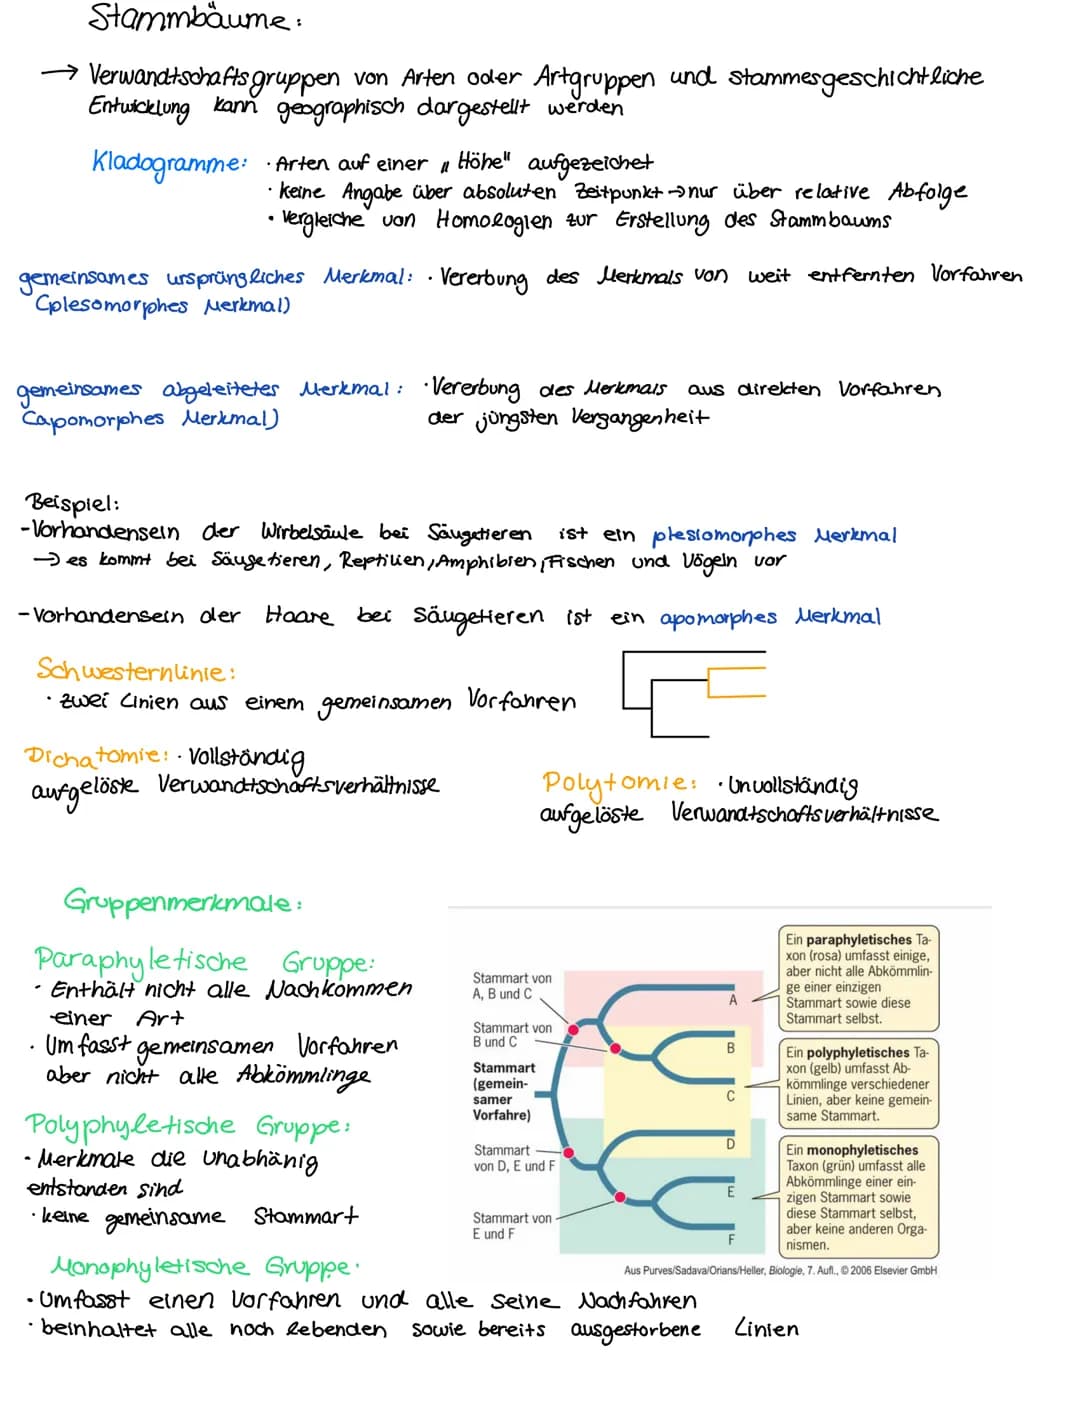 Stammbäume:
→ Verwandtschaftsgruppen von Arten oder Artgruppen und stammesgeschichtliche
Entwicklung kann geographisch dargestellt werden
Kladogramme: · Arten auf einer „Höhe" aufgezeichet
· keine Angabe über absoluten Zeitpunkt → nur über relative Abfolge
• Vergleiche von Homologien zur Erstellung des Stammbaums
gemeinsames ursprüngliches Merkmal: · Vererbung des Merkmals von weit entfernten Vorfahren
(plesomorphes Merkmal)
gemeinsames abgeleitetes Merkmal: · Vererbung des Merkmals aus direkten Vorfahren
(apomorphes Merkmal) der jüngsten Vergangenheit
Beispiel:
-Vorhandensein der Wirbelsäule bei Säugetieren ist ein plesiomorphes Merkmal
→ es kommt bei Säugetieren, Reptilien, Amphibien, Fischen und Vögeln vor
-Vorhandensein der Haare bei Säugetieren ist ein apomorphes Merkmal
Schwesternlinie:
· zwei Linien aus einem gemeinsamen Vorfahren
Dichatomie: · Vollständig
aufgelöste Verwandtschaftsverhältnisse
Polytomie: · Unvollständig
aufgelöste Verwandtschaftsverhältnisse
Gruppenmerkmale:
Paraphyletische Gruppe:
· Enthält nicht alle Nachkommen
einer Art
· Umfasst gemeinsamen Vorfahren
aber nicht alle Abkömmlinge
Polyphyletische Gruppe:
· Merkmale die unabhänig
entstanden sind
· keine gemeinsame Stammart
Monophyletische Gruppe·
· Umfasst einen Vorfahren und alle seine Nachfahren
· beinhaltet alle noch lebenden sowie bereits ausgestorbene Linien
Stammart von
A, B und C
Stammart von
B und C
Stammart
(gemein-
samer
Vorfahre)
Stammart
von D, E und F
Stammart von
E und F
A
B
C
D
E
F
Ein paraphyletisches Ta-
xon (rosa) umfasst einige,
aber nicht alle Abkömmlin-
ge einer einzigen
Stammart sowie diese
Stammart selbst.
Ein polyphyletisches Ta-
xon (gelb) umfasst Ab-
kömmlinge verschiedener
Linien, aber keine gemein-
same Stammart.
Ein monophyletisches
Taxon (grün) umfasst alle
Abkömmlinge einer ein-
zigen Stammart sowie
diese Stammart selbst,
aber keine anderen Orga-
nismen.
Aus Purves/Sadava/Orians/Heller, Biologie, 7. Aufl., © 2006 Elsevier GmbH